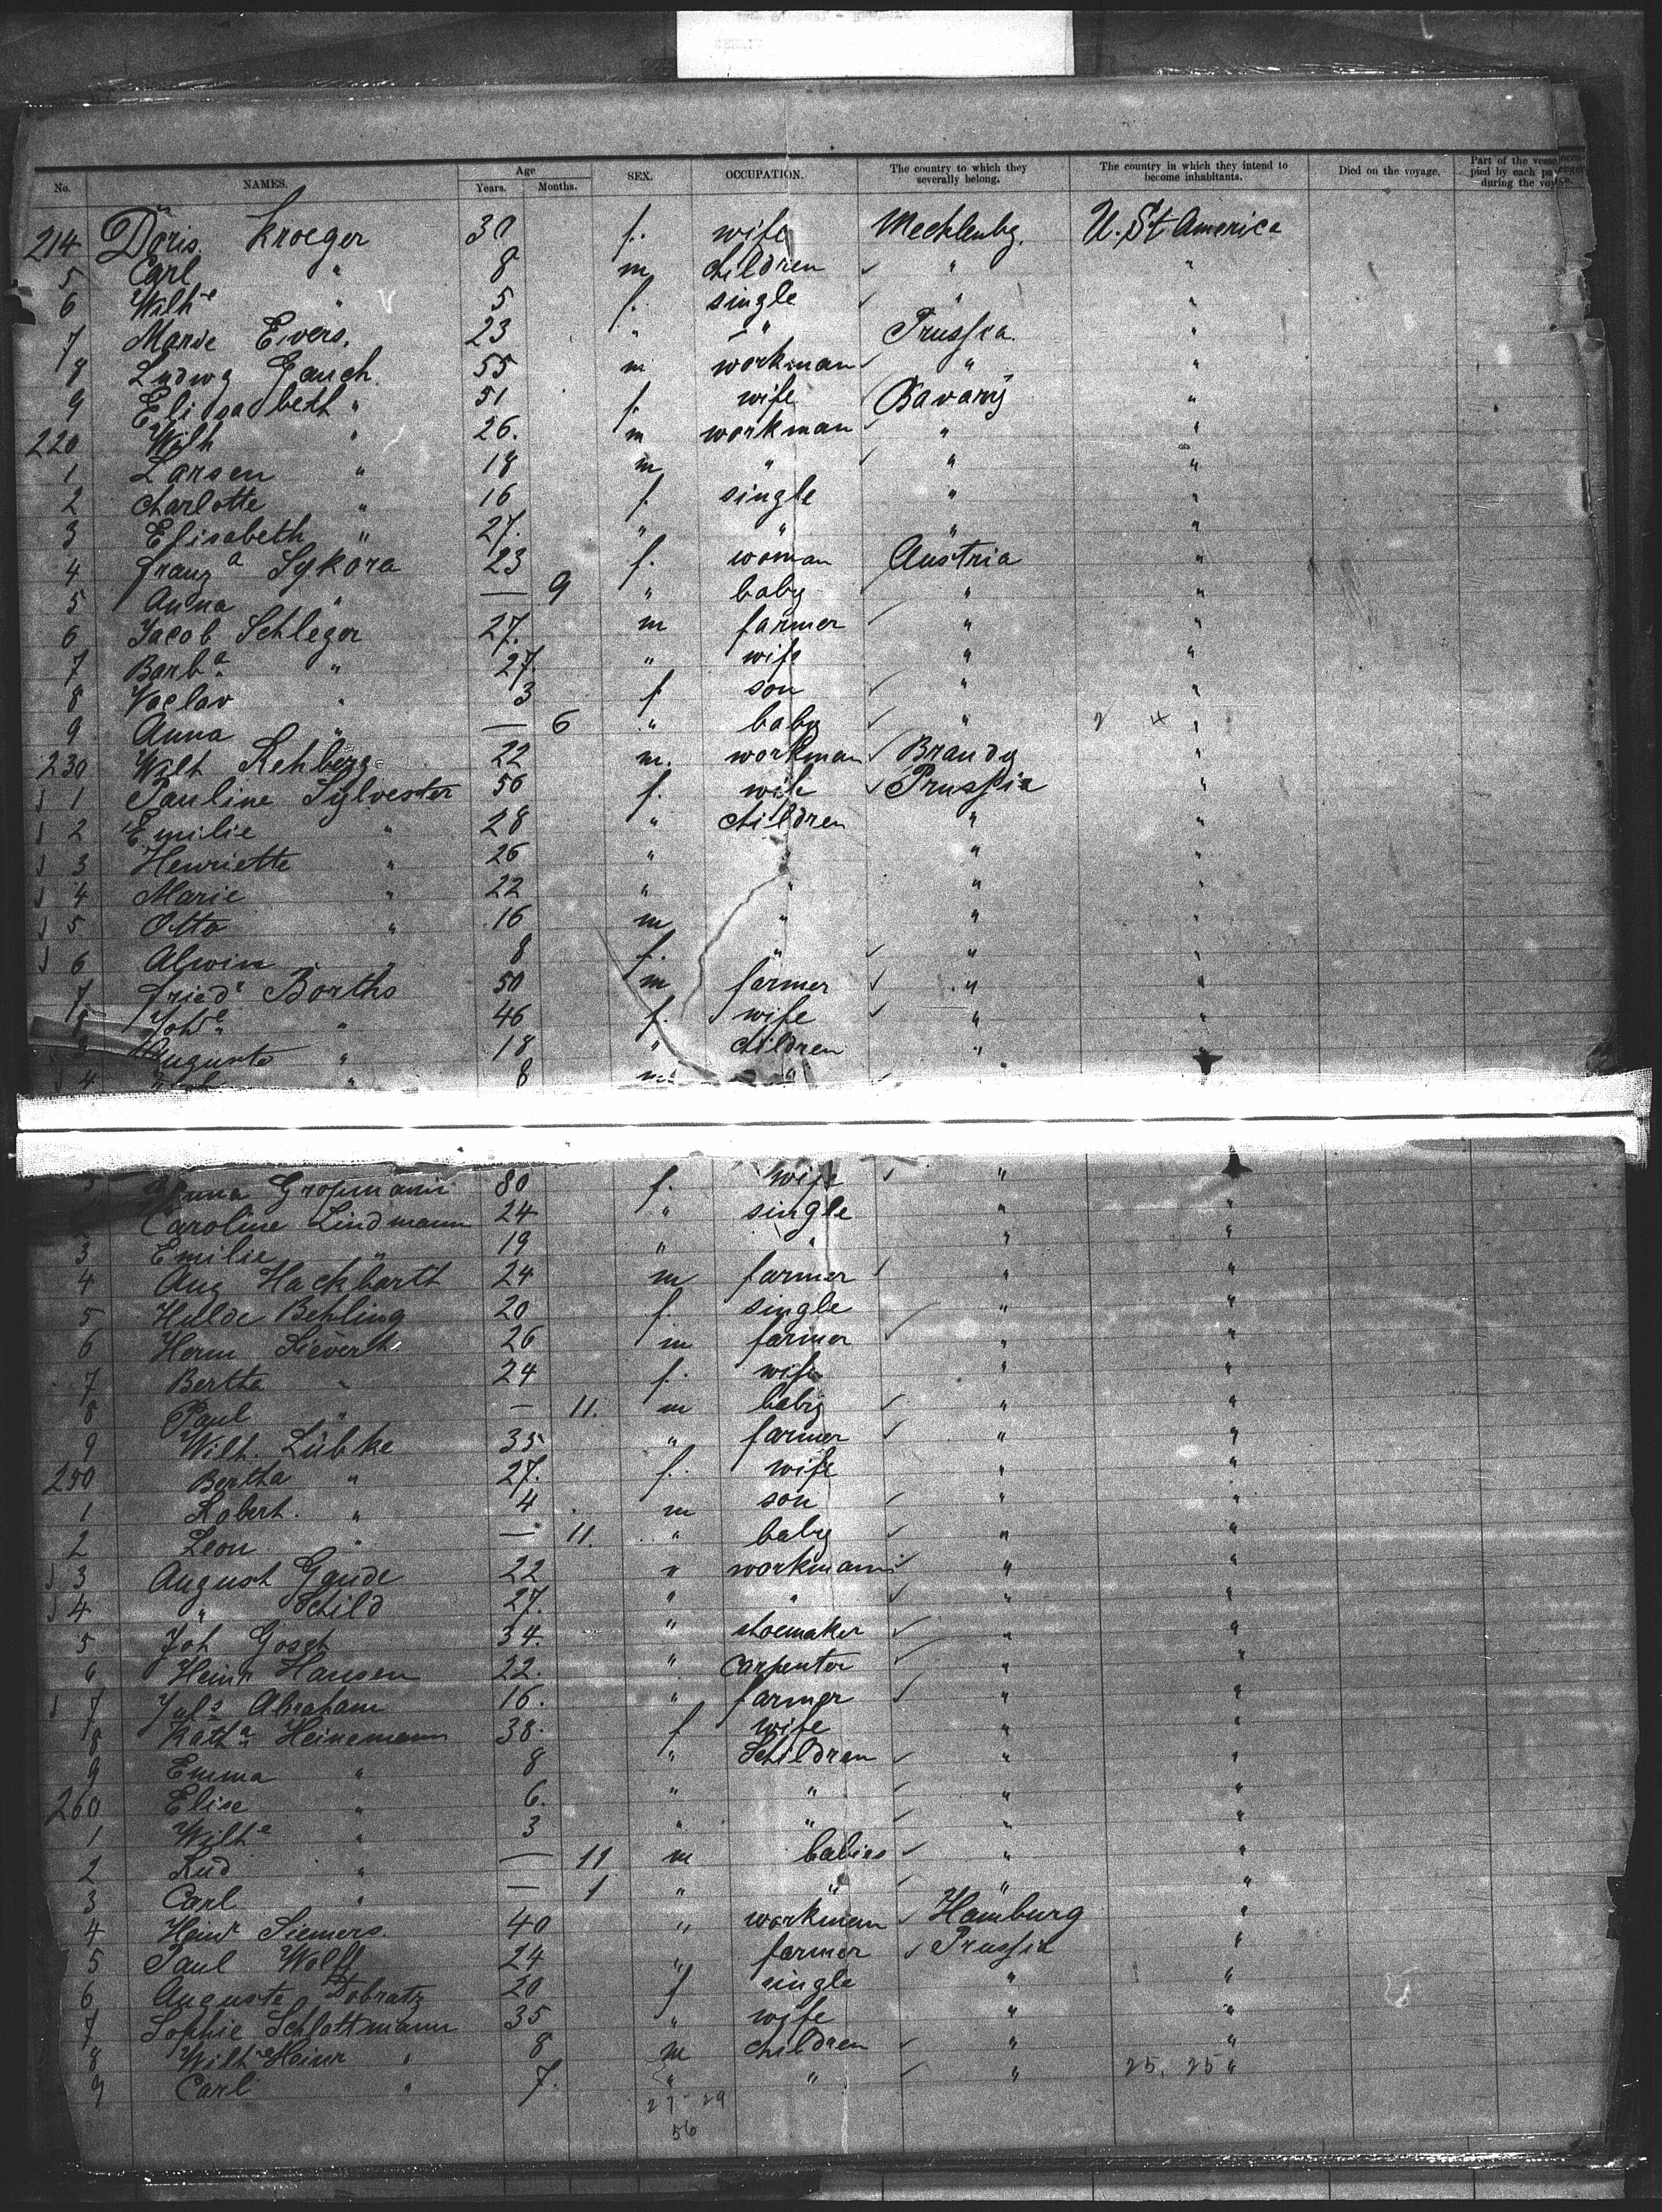 No. NAMES. Age Years. Months. SEX. OCCUPATION. The country to which they severally belong. The country in which they intend to become inhabitants. Died on the voyage. Part of the vessel occupied by each passenger during the voyage.
214 Doris Kroeger 30 f. wife Mecklenbg. U. St America
5 Carl " 8 m children ✓ " "
6 Wilhe " 5 f. single ✓ " "
7 Marie Evers. 23 " " Prussia "
8 Ludwg Gauch 55 m workman ✓ " "
9 Elisabeth " 51 f. wife Bavary "
220 Wilh " 26. m workman ✓ " "
1 Larsen " 18 m " ✓ " "
2 Charlotte " 16 f. single " "
3 Elisabeth " 27. " " " "
4 Franza Sykora 23 f. woman Austria "
5 Anna " — 9 " baby " "
6 Jacob Schleger 27. m farmer ✓ " "
7 Barba " 27. " wife " "
8 Vaclav " 3 f son ✓ " "
9 Anna " — 6 " baby ✓ " "
230 Wilh Rehberg 22 m. workman ✓ Brandg "
1 Pauline Sylvester 56 f. wife ✓ Prussia "
2 Emilie " 28 " children " "
3 Henriette " 26 " " " "
4 Marie " 22 " " " "
5 Otto " 16 m " " "
6 Alwine 8 f. " ✓ " "
7 Friedr Borths 50 m farmer ✓ " "
8 Johe " 46 f. wife ✓ " "
Auguste " 18 " children " "
4 " 8 m " ✓
Anna Grossmann 80 f. wife ✓ " "
Caroline Lindmann 24 " single " "
3 Emilie " 19 " " " "
4 Aug Hackbarth 24 m farmer ✓ " "
5 Hulde Behling 20 f. single " "
6 Herm Sievert 26 m farmer ✓ " "
7 Bertha " 24 f. wife " "
8 Paul " — 11. m baby ✓ " "
9 Wilh. Lübke 35 " farmer ✓ " "
250 Bertha " 27. f. wife " "
1 Robert. " 4 m son ✓ " "
2 Leon " — 11. " baby ✓ " "
3 August Gaude 22 " workman ✓ " "
4 " Schild 27. " " ✓ " "
5 Joh Gosch 34. " shoemaker ✓ " "
6 Heinr Hansen 22. " carpenter ✓ " "
7 Juls Abraham 16. " farmer ✓ " "
8 Katha Heinemann 38. f wife " "
9 Emma " 8 " children ✓ " "
260 Elise " 6. " " ✓ " "
1 Wilhe " 3 " " ✓ " "
2 Rud " — 11 m babies ✓ " "
3 Carl " — 1 " " ✓ " "
4 Heinr Siemers. 40 " workman ✓ Hamburg "
5 Paul Wolff 24 " farmer ✓ Prussia "
6 Auguste Dobratz 20 f single " "
7 Sophie Schlottmann 35 " wife " "
8 Wilh Heinr " 8 m children ✓ " "
9 Carl " 7. " " ✓ " 25. 25 "
27 - 29
56